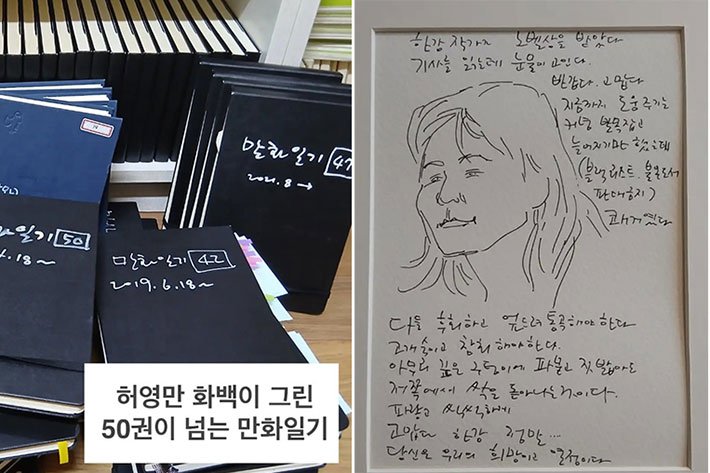 만화일기 47
2021.8 →
화일기 50
만화일기 42
2019.6.18~
허영만 화백이 그린
50권이 넘는 만화일기
한강 작가가 노벨상을 받았다
기사를 읽는데 눈물이 고인다.
반갑다. 고맙다
지금까지 도움주기는
커녕 발목잡고
늘어지기만 했는데
(블랙리스트, 불온도서
판매금지)
쾌거였다
다들 후회하고 엎드려 통곡해야 한다
고개숙이고 참회해야한다.
아무리 깊은 구덩이에 파묻고 짓밟아도
저쪽에서 싹은 돋아나는것이다.
파랗고 씩씩하게
고맙다 한강 정말...
당신은 우리의 희망이고 열정이다